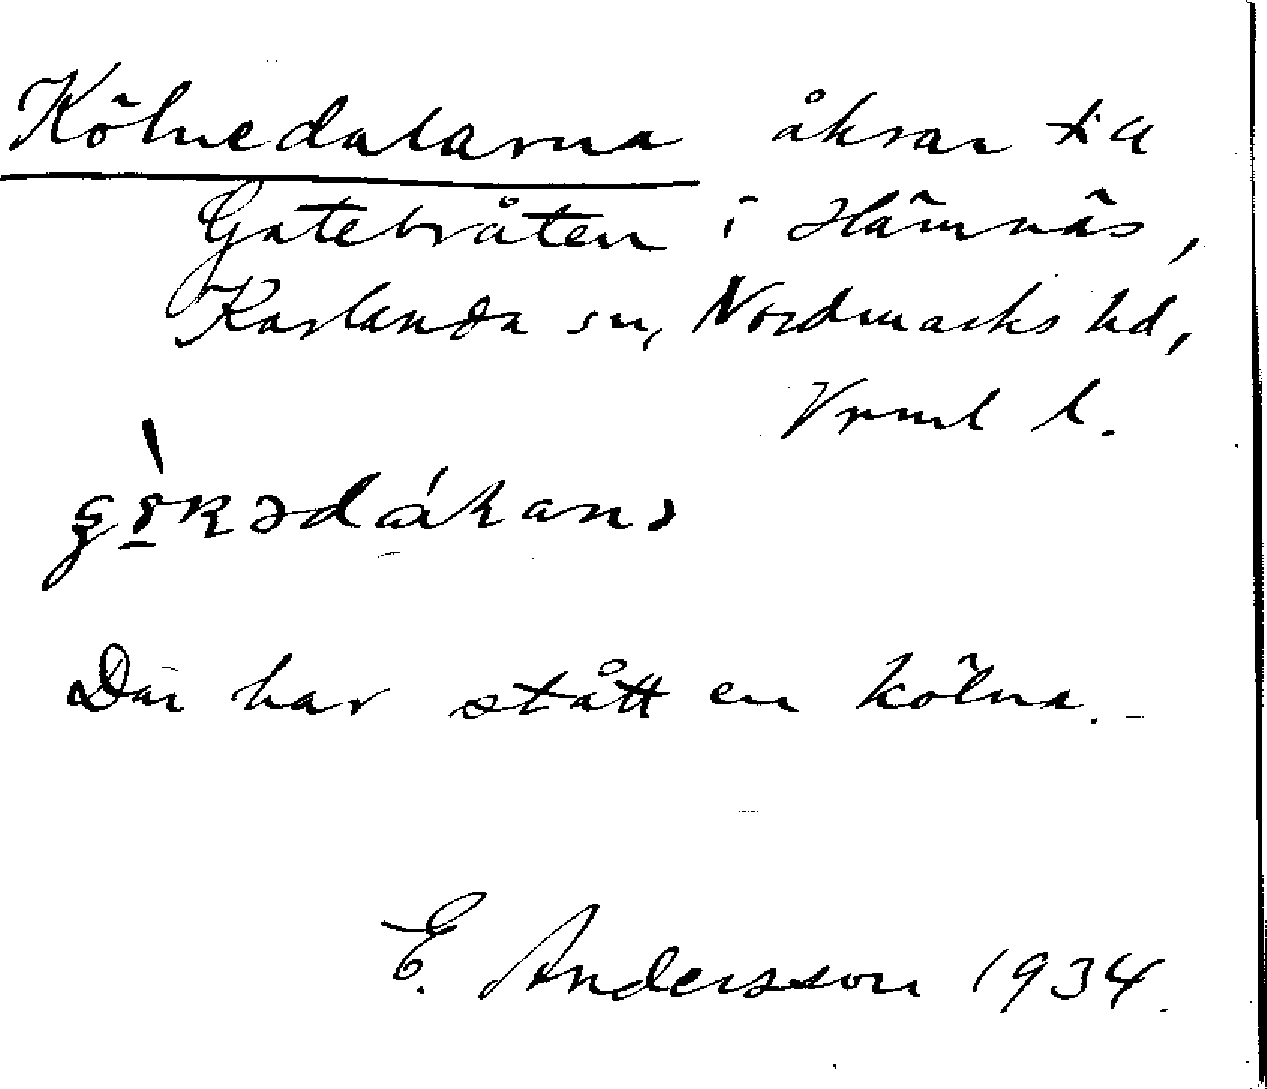 Kölnedalarna åkrar till
Gatebråten i Hämnäs,
Karlanda sn, Nordmarks hd,
Vrml l.
Där har stått en kölna.
E. Andersson 1934.